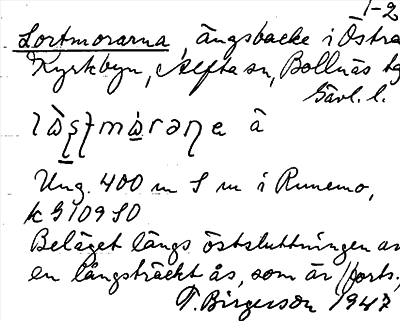 1-2
Lortmorarna, ängsbacke i Östra
Kyrkbyn, Alfta sn, Bollnäs tg
Gävl. l.
Ung. 400 m S m i Runemo,
k G 109 SO
Beläget längs östsluttningen av
en långsträckt ås, som är //forts.,
T. Birgerson 1947